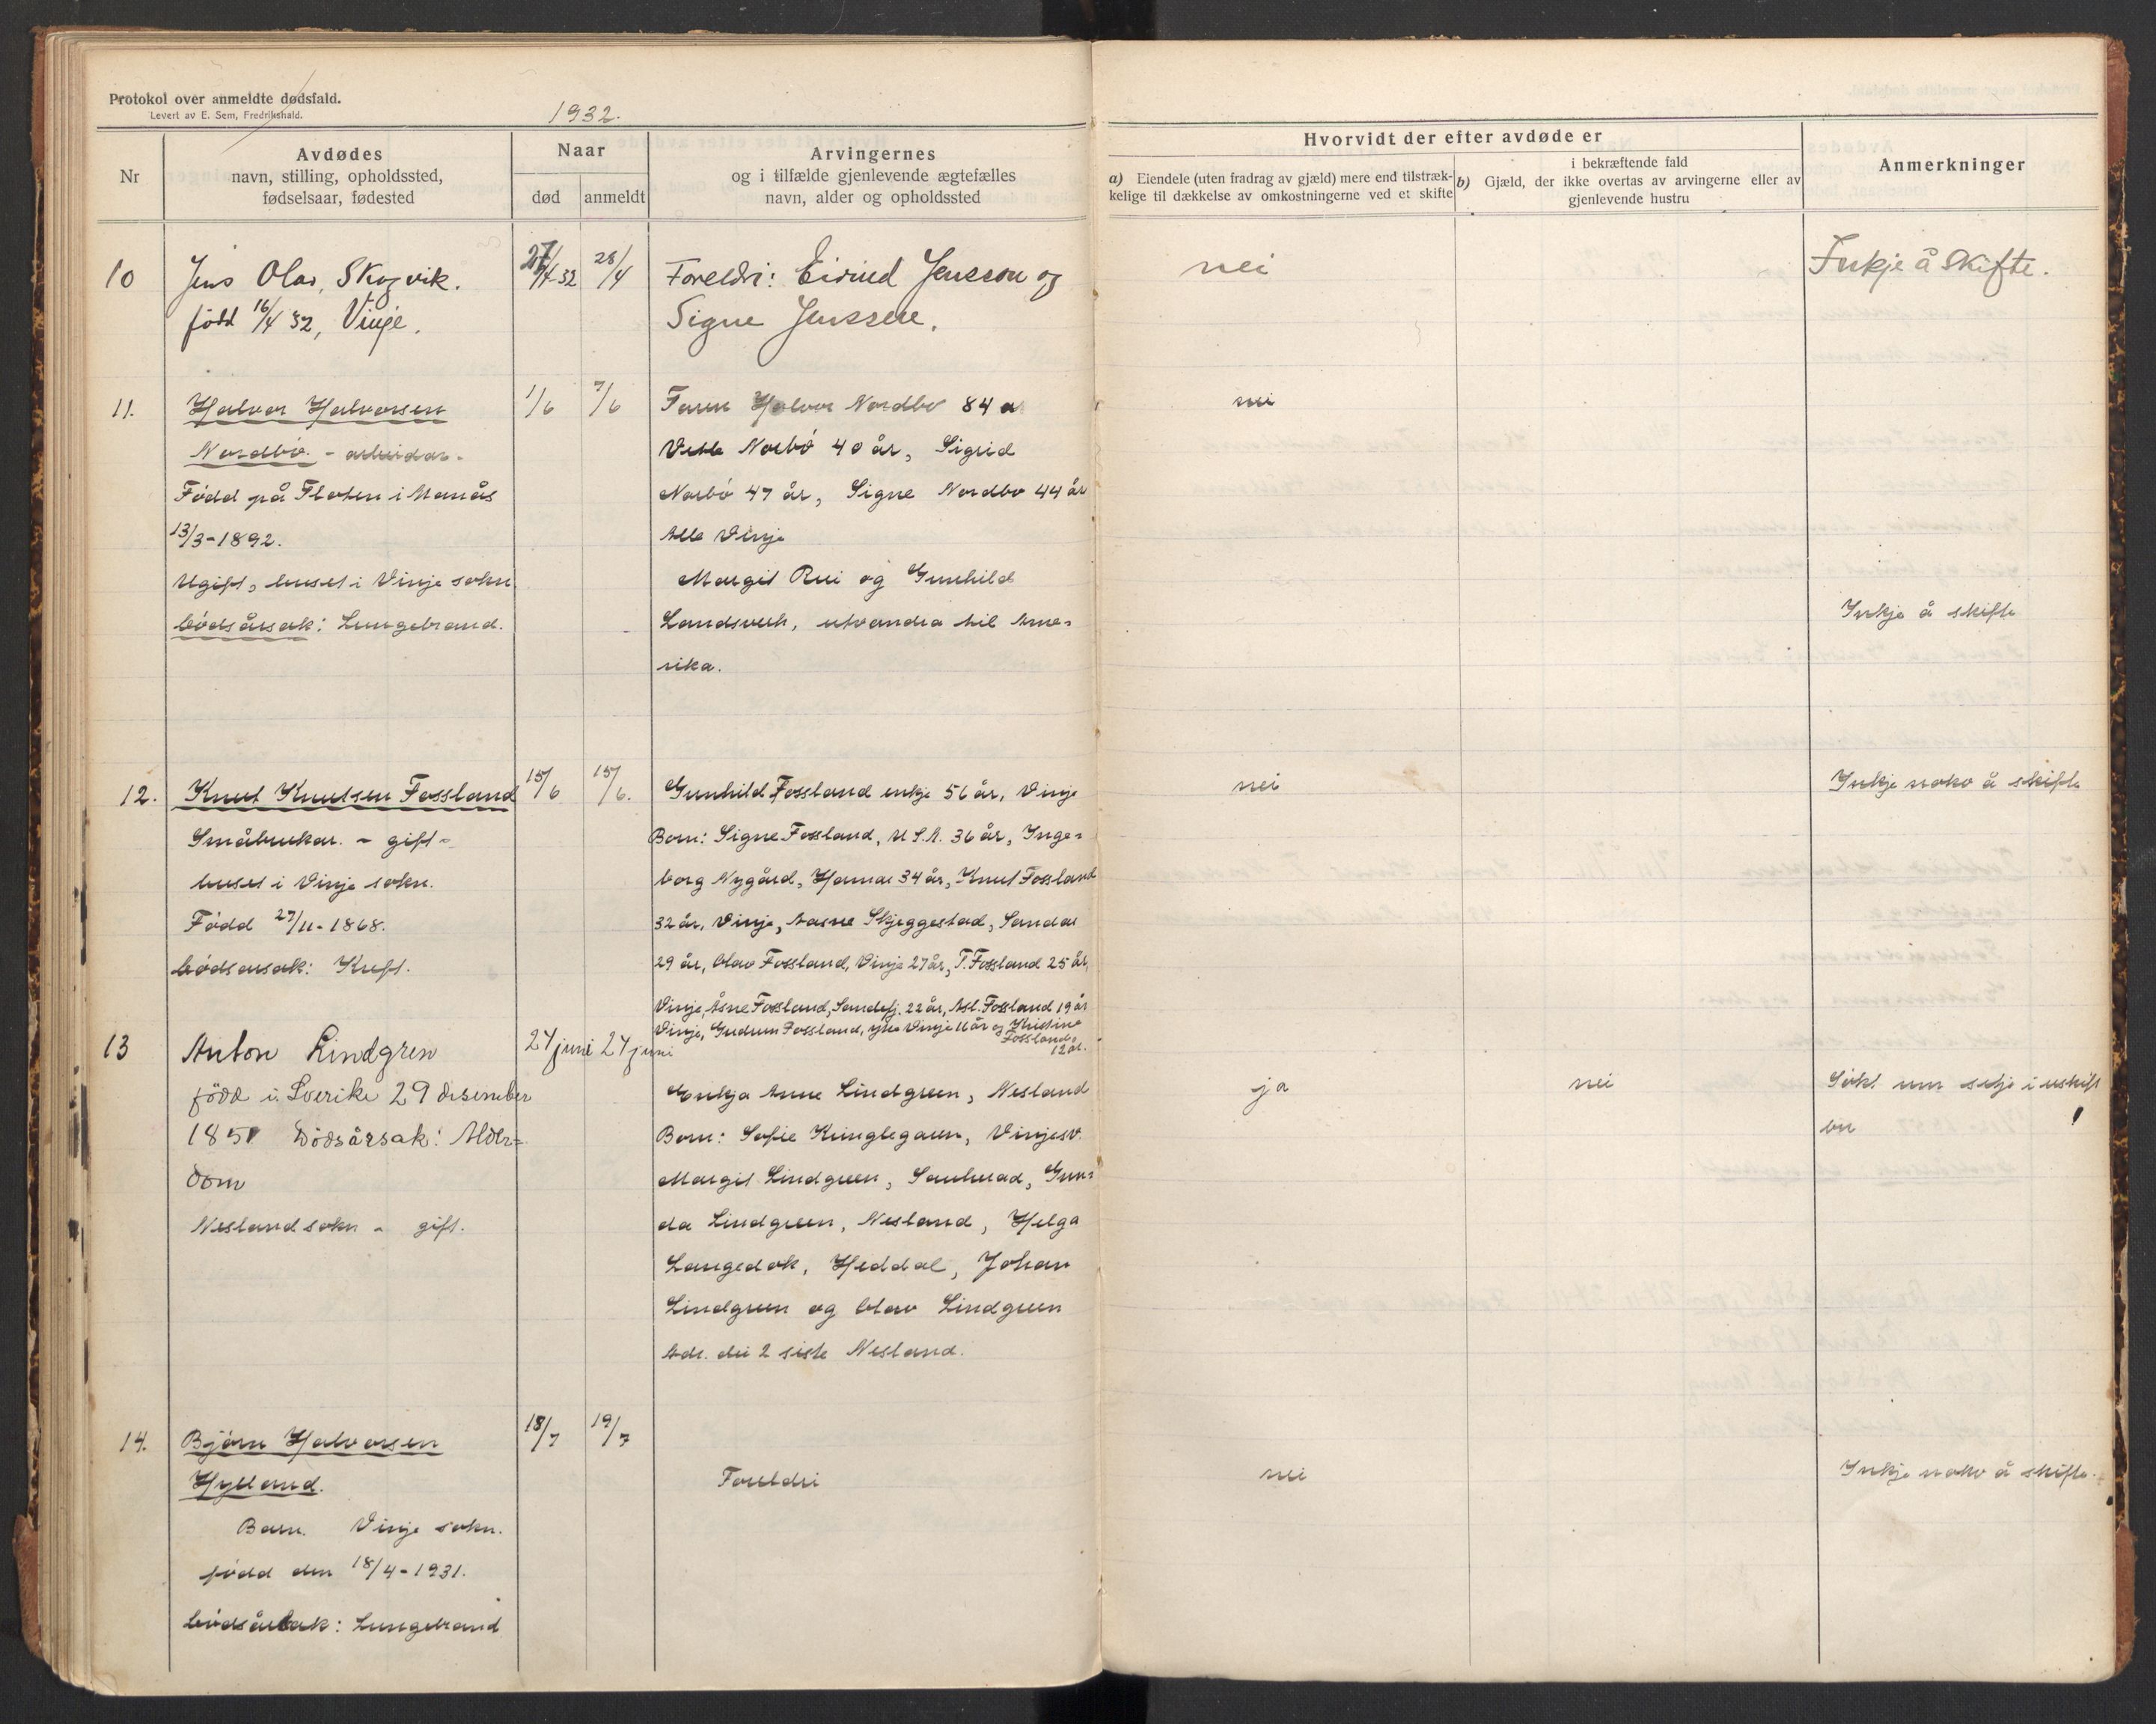 Protokol over anmeldte dødsfald.
Levert av E. Sem, Fredrikshald.
1932.
Nr
Avdødes
navn, stilling, opholdssted,
fødselsaar, fødested
Naar
død
anmeldt
Arvingernes
og i tilfælde gjenlevende ægtefælles
navn, alder og opholdssted
Hvorvidt der efter avdøde er
a) Eiendele (uten fradrag av gjæld) mere end tilstræk-
kelige til dækkelse av omkostningerne ved et skifte
i bekræftende fald
b) Gjæld, der ikke overtas av arvingerne eller av
gjenlevende hustru
Anmerkninger
10
Jens Olav, Skogvik.
født 16/4 32, Vinje.
27/4-32
28/4
Foreldri: Eivind Jensson og
Signe Jenssen.
nei
Inkje å skifte.
11.
Halvor Halvorsen
Nordbø. - arbeidar.
Fødd på Floten i Manås
13/3-1892.
Ugift, buset i Vinje sokn.
Dødsårsak: Lungebrand.
1/6
7/6
Faren Halvor Nordbø 84 a
Vetle Norbø 40 år, Sigrid
Norbø 47 år, Signe Nordbø 44 år
Alle Vinje
Margit Rui og Gunhild
Landsverk, utvandra til Ame-
rika.
nei
Inkje å skifte
12.
Knut Knutsen Fossland
Småbrukar. - gift -
buset i Vinje sokn.
Fødd 27/11-1868.
Dødsårsak: Kreft.
15/6
15/6.
Gunhild Fossland enkje 56 år, Vinje
Born: Signe Fossland, U.S.A. 36 år, Inge-
borg Nygård, Hamar 34 år, Knut Fossland
32 år, Vinje, Aasne Skjeggestad, Sandar
29 år, Olav Fossland, Vinje 27 år, T. Fossland 25 år,
Vinje, Åsne Fossland, Sandefj. 22 år, Asl. Fossland 19 år
Vinje, Gudrun Fossland, Vinje 11 år og Kristine
Fossland,
12 år.
nei
Inkje noko å skifte
13
Anton Lindgren
född i Sverike 29 desember
1851 Dødsårsak: Alder=
dom
Nesland sokn - gift.
24 juni
24 juni
Enkja Anne Lindgreen, Nesland
Born: Sofie Kringlegaren, Vinjesv.
Margit Lindgreen, Sauherad, Gun-
da Lindgreen, Nesland, Helga
Langedok, Heddal, Johan
Lindgreen og Olav Lindgreen
Adr. dei 2 siste Nesland.
ja
nei
Søkt um setje i uskift
bu
14.
Bjørn Halvorsen
Hylland.
Barn. Vinje sokn.
fødd den 18/4-1931.
Dødsårsak: Lungebrand
18/7
19/7
Foreldri
nei
Inkje noko å skifte.